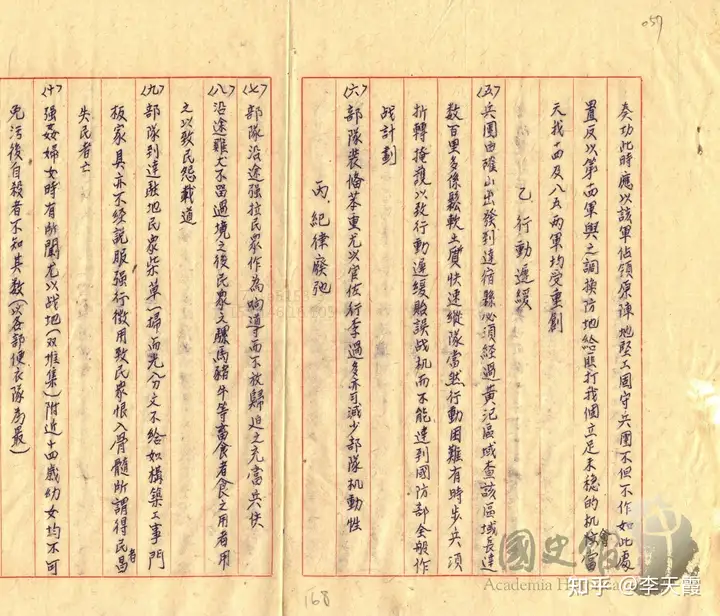 057
奏功此時應以該軍佔領原陣地堅工固守兵團不但不作如此處
置反以第十四軍與之調換防地給匪打我個立足未穩的机會當
天我十四及八五两軍均受重創
乙、行動遲緩
(五)兵團由確山出發到達宿縣必須經過黄氾區域查該區域長達
数百里多係鬆軟土質快速縱隊當然行動困難有時步兵須
折轉掩護以致行動遲緩貽誤战机而不能達到國防部全般作
战計劃
(六)部隊裝俻笨重尤以官佐行李過多亦可減少部隊机動性
丙、紀律廢弛
(七)部隊沿途强拉民衆作為响道寸而不放歸迫之充當兵伕
(八)沿途雞犬不留過境之後民衆之騾馬豬牛等畜食者食之用者用
之以致民怨載道
(九)部隊到達駐地民衆柴草一掃而光分文不給如構築工事門
板家具亦不經説服强行徵用致民衆恨入骨髓所謂得民者昌
失民者亡
(十)强姦婦女時有所聞尤以战地(双堆集)附近十四歲幼女均不可
免污後自殺者不知其数(以各部便衣隊為最)
168
國史館
Academia H
知乎 @李天霞